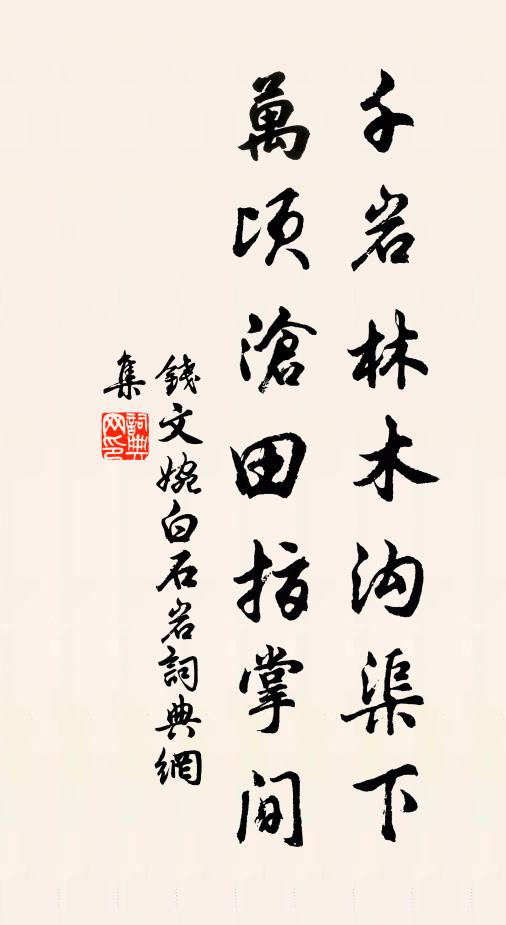 千岩林木沟渠下
萬頃滄田指掌間
錢文婉白石岩詞典網
集
詞典网印